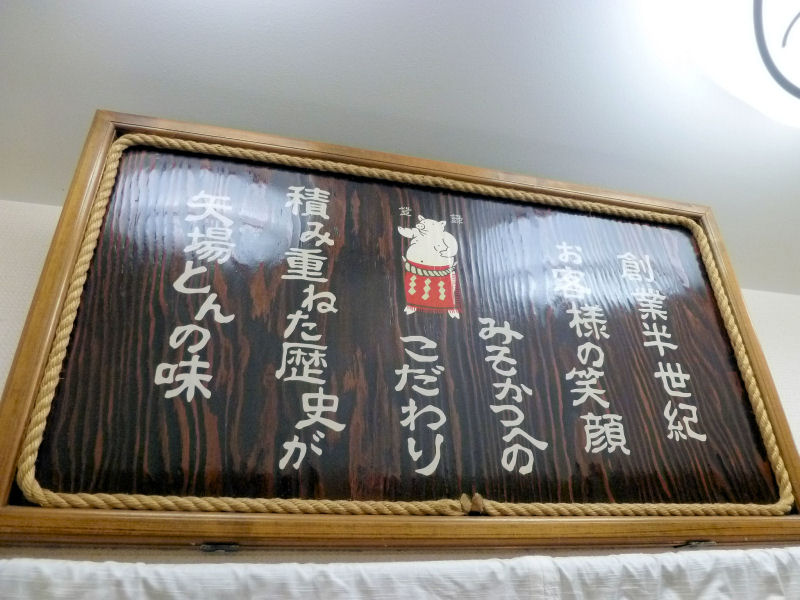 創業半世紀
お客様の笑顔
みそかつへの
こだわり
登録
積み重ねた歴史が
矢場とんの味